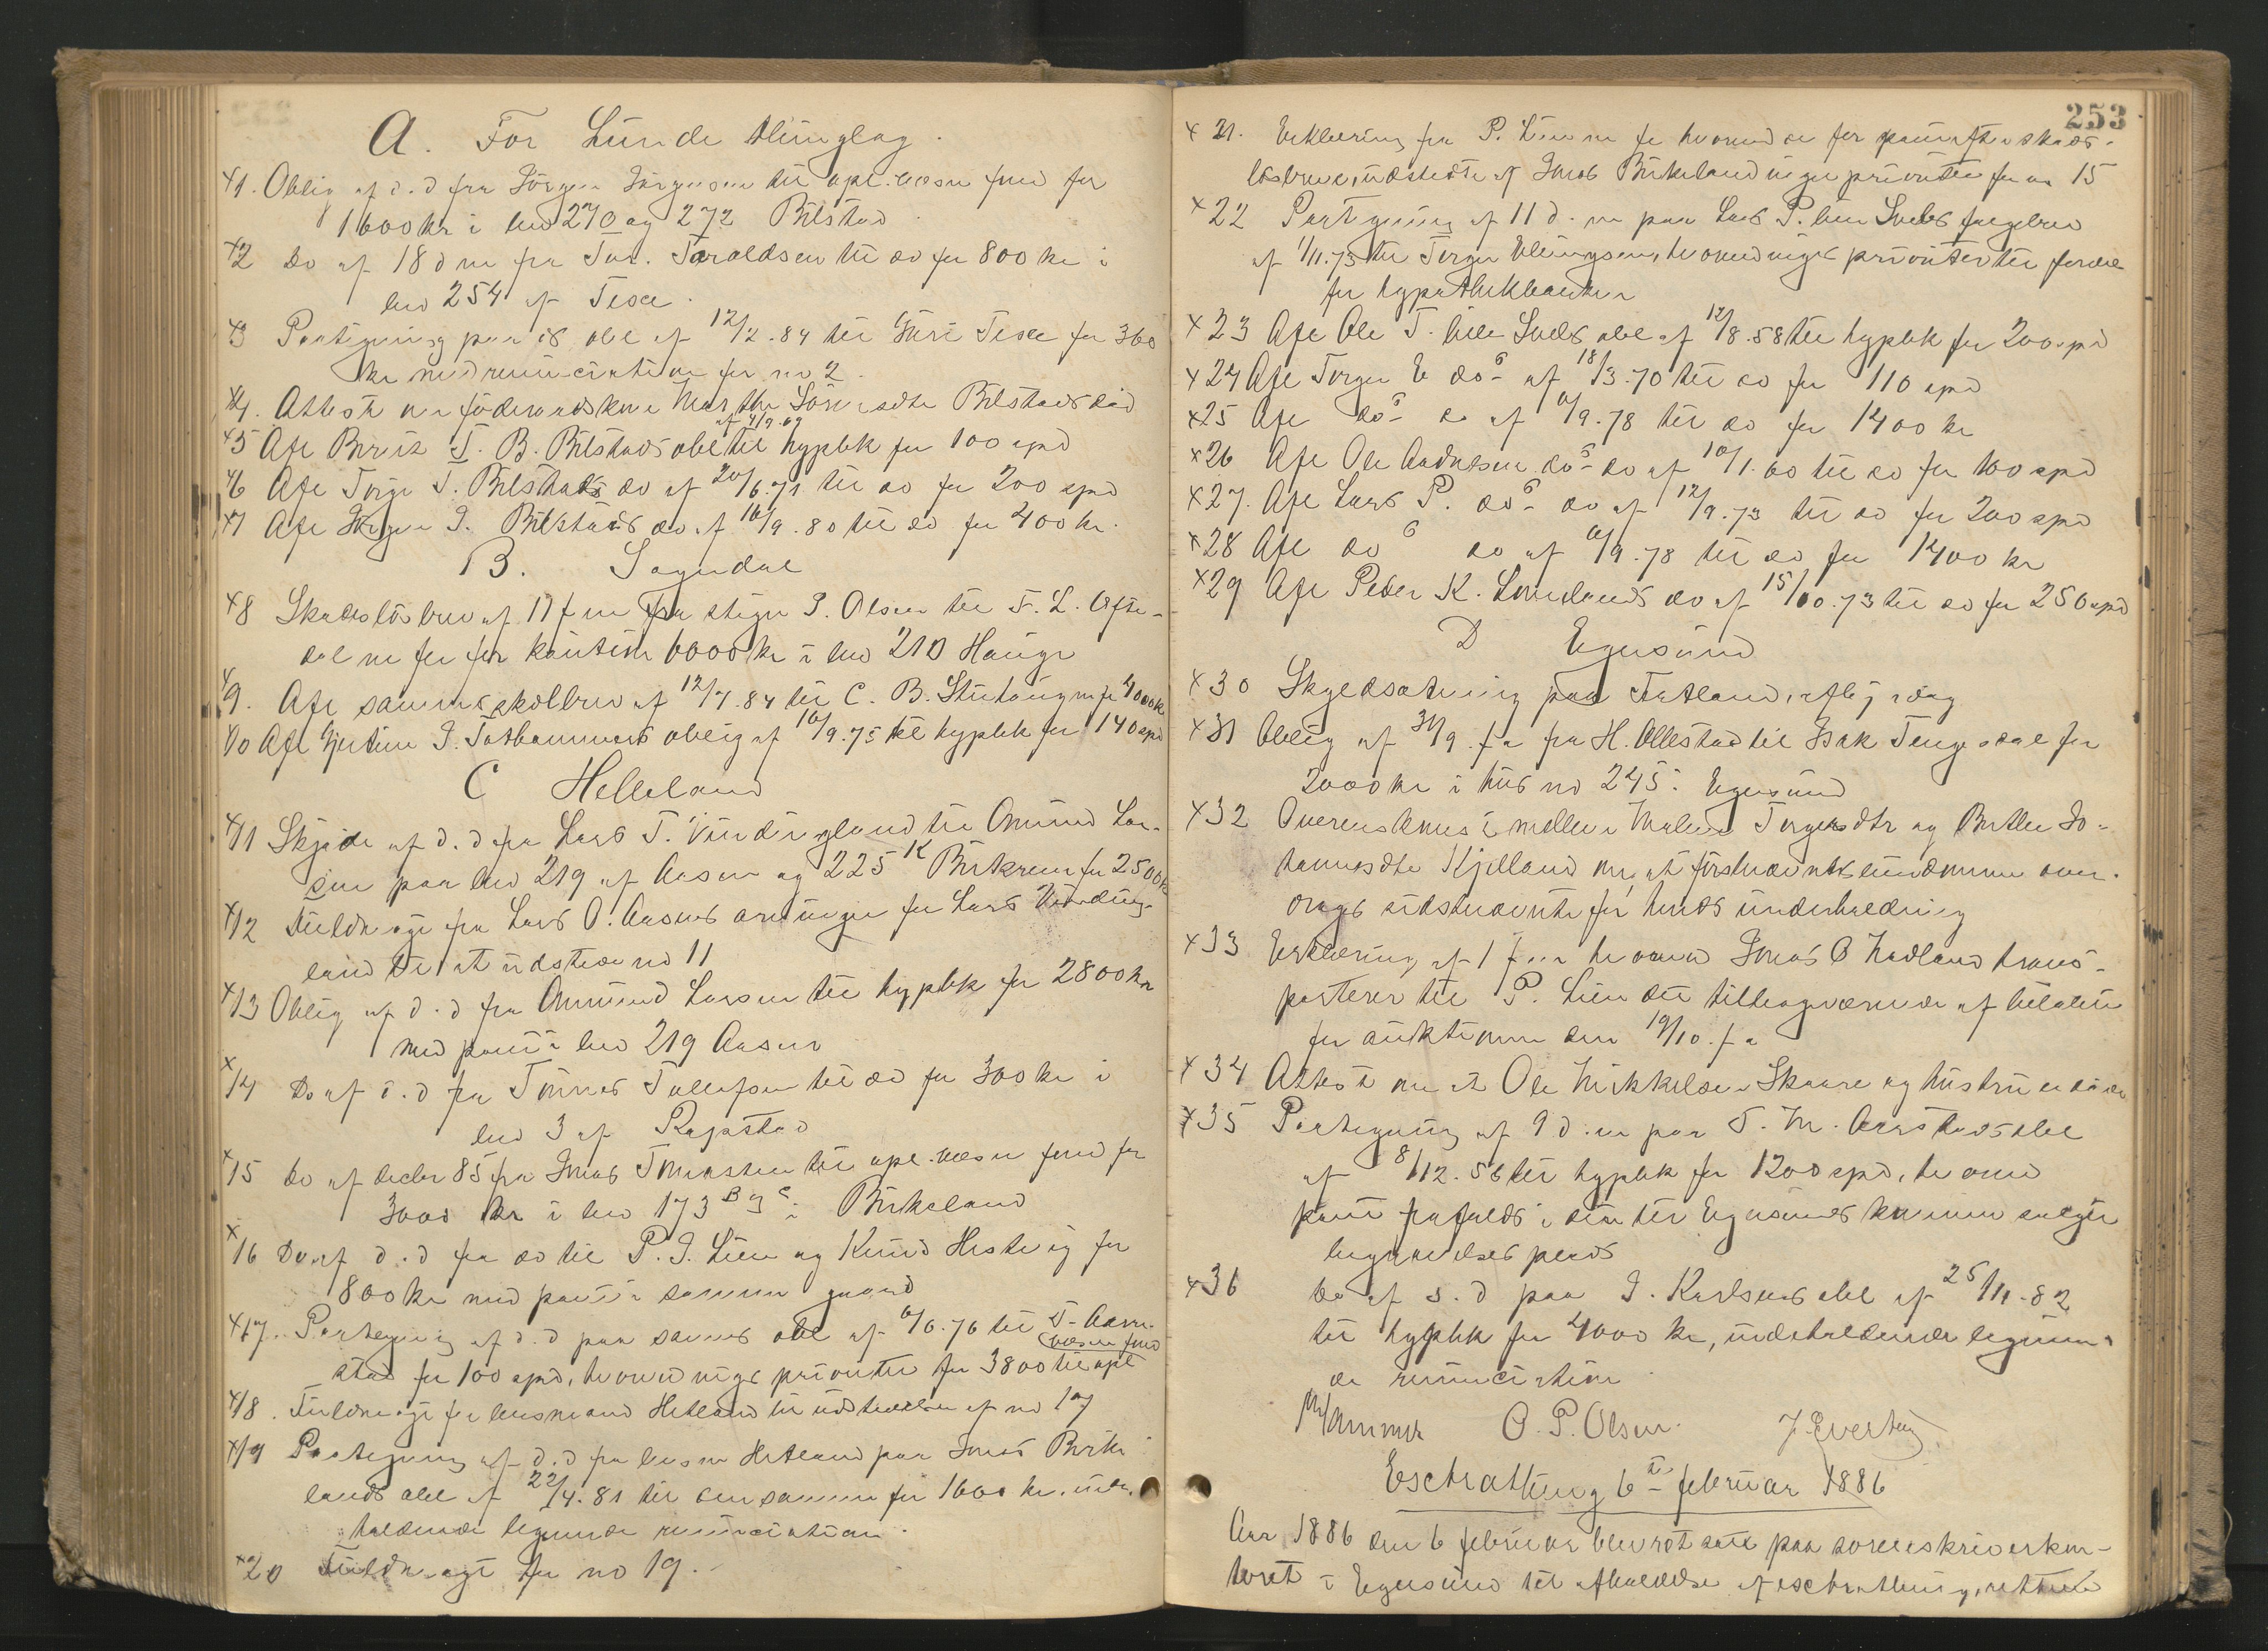 A. For Lunde thinglag.
x1. Oblig af d.d fra Jörgen Jörgensen til opl.væsen fond for
1600 kr i lno 270 og 272 Bilstad
x2 Do af 18 d m fra Tar. Taraldsen til do for 800 kr i
lno 254 af
x3 Paategning paa obl af 12/2.84 til for 360
kr med renunciation for no 2.
x4. Attest om föderaadskone Marthe Bilstads död
x5 Afl Berix T. B. Bilstads obl af til hypbk for 100 spd
x6 Afl Torger T. Bilstads do af 20/6.71 til do for 200 spd
x7 Afl Jörgen J. Bilstads do af 16/9.80 til do for 400 kr.
B. Sogndal
x8 Skadeslösbrev af 11 f m fra P. Olsen til F. L.
dal for kaution 6000 kr i lno 210 Hauge
x9. Afl sammes skdlbrev af 12/7.84 til C. B. for 4000 kr
x10 Afl J. oblig af 16/9.75 til hypbk for 140 spd
C Helleland
x11 Skjöde af d.d fra Lars T. Vindingland til Omund Lar-
sen paa lno 219 af Aasen og 225 K Birkrem for 2500 kr
x12 Fuldmagt fra Lars O. Aasens arvinger for Lars Vinding-
land til at udstede no 11
x13 Oblig af d.d fra Ommund Larsen til hypbk for 2800 kr
med pant i lno 219 Aasen
x14 Do af d.d fra Tönnes Tollefsen til do for 300 kr i
lno 3 af Rapstad
x15 Do af decbr 85 fra Jonas Tönnesen til opl.væsen fond for
3000 kr i lno 173 B og C i Birkeland
x16 Do af d.d fra do til P. J. Lien og Knud for
800 kr med pant i samme gaard
x17. Paategning af d.d paa sammes obl af 6/6.76 til T. Aam-
stad for 100 spd, hvorved viges prioritet for 3800 til opl væsen fond
x18. Fuldmagt for lensmand Hetland til udstedelse af no 17
x19 Paategning af d.d fra lensm Hetland paa Jonas Birke-
lands obl af 22/4.81 til densamme for 1600 kr, inde-
holdende lignende renunciation.
x20 Fuldmagt for no 19.
253
x 21. Erklæring fra P. Lien hvorved der for skades-
lösbreve, udstedte af Jonas Birkeland viges prioritet for no 15
x22 Paategning af 11 d.m paa Lars P. lille Svelas
af 1/11.75 til Torger Ellingsen, hvorved viges prioritet til fordel
for hypothekbanken
x 23 Afl Ole T. lille Svelas obl af 12/8.58 til hypbk for 200 spd
x 24 Afl Torger E dos af 18/3.70 til do for 110 spd
x25 Afl dos do af /9.78 til do for 1400 kr
x26 Afl Ole Aadnesen dos do af 10/1.60 til do for 100 spd
x27. Afl Lars P. dos do af 12/9.73 til do for 200 spd
x28 Afl dos do af /9.78 til do for 1400 kr
x29 Afl Peder K. do af 15/10.73 til do for 250 spd
D Egersund
x 30 Skyldsætning paa aflj idag
x31 Oblig af 31/9 f a fra H. Ollestad til Isak Tengesdal for
2000 kr i hus no 245 i Egersund
x32 Overenskomst mellem Malene Torgersdtr og Berthe Jo-
hannesdtr Kjelland om at förstnævntes eiendomme over-
drages sidstnævnte for hends underholdning
x33 Erklæring af 1 f m hvorved Jonas O Hadland trans-
porterer til P. Lien det tilbageværende af
for auktionen den 19/10. f a
x 34 Attest om at Ole Mikkelsen Skaare og hustru er döde
x35 Paategning af 9 d.m paa T. M. Aarstads obl
af 8/12.56 til hypbk for 1200 spd, hvorved
pant frafaldes i den til Egersunds kommune solgte
begravelsesplads
x36 Do af s.d paa J. Karlsens obl af 25/11.82
til hypbk for 4000 kr, indeholdende lignen-
de renunciation.
O. P. Olsen. J. Evertsen
Extrathing 6te februar 1886
Aar 1886 den 6 februar blev ret sat paa sorenskriverkon-
toret i Egersund til afholdelse af extrathing, rettens